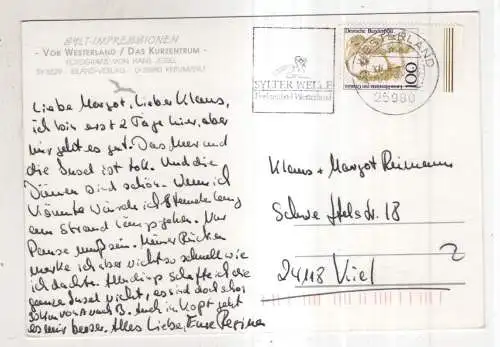 SYLT-IMPRESSIONEN
- VOR WESTERLAND / DAS KURZENTRUM -
FOTOGRAFIE VON HANS JESSEL
SYLTER WELLE
Freizeitbad Westerland
WESTERLAND
25980
Deutsche Bundespost
100
Liebe Margot, Lieber Klaus,
ich bin erst 2 Tage hier, aber
mir geht es gut. Das Meer und
die Insel ist toll. Und die
Dünen sind schön. Wenn ich
könnte würde ich 8 Stunden lang
am Strand längs gehen. Nur
Pause muß sein. Meinen Rücken
merke ich aber nicht so schnell wie
ich dachte. Allerdings schaffe ich die
ganze Insel nicht, es sind doch schon
von A nach B. Auch im Kopf geht
es mir besser. Alles Liebe, Eure Regina
Klaus + Margot Reimann
Schweffelstr. 18
24118 Kiel
2